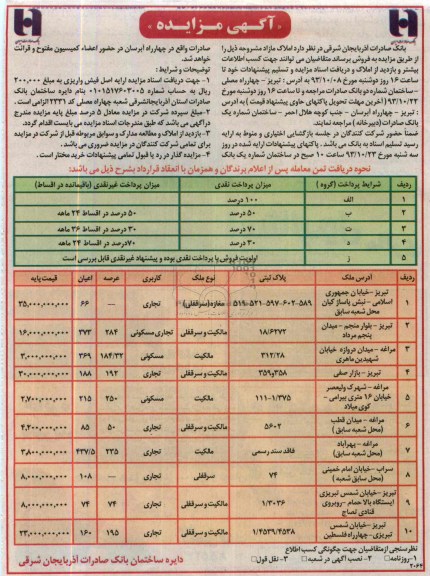 آگهی مزایده
بانک صادرات آذربایجان شرقی در نظر دارد املاک مازاد مشروحه ذیل را
از طریق مزایده به فروش برساند متقاضیان می توانند جهت کسب اطلاعات
بیشتر و بازدید از املاک و دریافت اسناد مزایده و تسلیم پیشنهادات خود تا
ساعت ۱۶ روز دوشنبه مورخ ۹۳/۱۰/۰۸ به آدرس : تبریز - چهارراه مصلی
- ساختمان شماره دو بانک صادرات مراجعه و تا ساعت ۱۶ روز دوشنبه مورخ
۹۳/۱۰/۲۲ (آخرین مهلت تحویل پاکتهای حاوی پیشنهاد قیمت ) به آدرس
: تبریز - چهارراه آبرسان - جنب کوچه هلال احمر - ساختمان شماره یک
بانک صادرات (دبیرخانه ) مراجعه نمایند.
ضمنا حضور شرکت کنندگان در جلسه بازگشایی اختیاری و منوط به ارایه
رسید تسلیم اسناد به بانک می باشد . پاکتهای پیشنهادات ارایه شده در روز
سه شنبه مورخ ۹۳/۱۰/۲۳ ساعت ۱۰ صبح در ساختمان شماره یک بانک
صادرات واقع در چهارراه آبرسان در حضور اعضاء کمیسیون مفتوح و قرائت
خواهد شد.
توضیحات و شرایط :
۱- جهت دریافت اسناد مزایده ارایه اصل فیش واریزی به مبلغ ۲۰۰,۰۰۰
ریال به حساب شماره ۰۱۰۱۵۱۷۶۰۳۰۰۵ بنام دایره ساختمان بانک
صادرات استان آذربایجانشرقی شعبه چهاراه مصلی کد ۲۳۳۱ الزامی است .
۲- مبلغ سپرده شرکت در مزایده معادل ۵ درصد مبلغ پایه مزایده مندرج
در آگهی می باشد که طبق مندرجات اسناد مزایده می بایست اقدام گردد.
۳- بازدید از املاک و مطالعه مدارک و سوابق مربوطه قبل از شرکت در مزایده
برای تمامی شرکت کنندگان در مزایده ضروری می باشد .
۴- مزایده گذار در رد یا قبول تمامی پیشنهادات خرید مختار است .
نحوه دریافت ثمن معامله پس از اعلام برندگان و همزمان با انعقاد قرارداد بشرح ذیل می باشد:
ردیف شرایط پرداخت (گروه ) میزان پرداخت نقدی میزان پرداخت غیرنقدی (باقیمانده در اقساط)
۱ الف ۱۰۰ درصد
۲ ب ۵۰ درصد ۵۰ درصد در اقساط ۲۴ ماهه
۳ ت ۷۰ درصد ۳۰ درصد در اقساط ۳۶ ماهه
۴ د ۳۰ درصد ۷۰ درصد در اقساط ۲۴ ماهه
۵ ز اولویت فروش با پرداخت نقدی بوده و پیشنهاد غیرنقدی قابل بررسی است
ردیف آدرس ملک پلاک ثبتی نوع ملک کاربری عرصه اعیان قیمت پایه
۱ تبریز -خیابان جمهوری اسلامی - نبش پاساژ کیان (محل شعبه سابق) ۵۸۹-۶۰۲-۵۹۷-۵۲۱-۵۱۹ مغازه (سرقفلی) تجاری — ۶۶ ۳۵,۰۰۰,۰۰۰,۰۰۰
۲ تبریز - بلوار منجم - میدان پنجم مرداد ۱۸/۶۲۷۲ مالکیت و سرقفلی تجاری مسکونی ۲۸۴ ۲۷۳ ۱۶,۰۰۰,۰۰۰,۰۰۰
۳ مراغه - میدان دروازه خیابان شهیدین ماهری ۳۱۲/۲۸ مالکیت مسکونی ۱۸۴/۳۲ ۳۶۹ ۳,۰۰۰,۰۰۰,۰۰۰
۴ تبریز - بازار صفی ۳۵۸و۳۵۹ مالکیت و سرقفلی تجاری ۱۹۲ ۱۸۸ ۳۰,۰۰۰,۰۰۰,۰۰۰
۵ مراغه - شهرک ولیعصر خیابان ۱۶ متری بیرامی - کوی میلاد ۱۱۱-۱/۳۷۵ مالکیت مسکونی ۲۵۰ ۲۱۵ ۲,۷۰۰,۰۰۰,۰۰۰
۶ مراغه - میدان قطب (محل شعبه سابق ) ۵۶۰۲ مالکیت و سرقفلی تجاری ۵۰ ۸۵ ۴,۲۰۰,۰۰۰,۰۰۰
۷ مراغه - بهرآباد (محل شعبه سابق) فاقد سند رسمی مالکیت تجاری ۲۳۵ ۴۳۷/۵ ۳,۸۰۰,۰۰۰,۰۰۰
۸ سراب -خیابان امام خمینی (محل سابق شعبه ) ۷۴ سرقفلی تجاری — ۱۰۸ ۸,۰۰۰,۰۰۰,۰۰۰
۹ تبریز - خیابان شمس تبریزی ایستگاه بالا حمام -روبروی قنادی نساج ۱/۳۰۳۶ مالکیت و سرقفلی تجاری ۷۴ ۷۴ ۸,۰۰۰,۰۰۰,۰۰۰
۱۰ تبریز -خیابان شمس تبریزی- چهارراه فلسطین ۱/۴۵۳۹/۴۵۳۸ مالکیت و سرقفلی تجاری ۱۹۵ ۱۶۰ ۲۳,۰۰۰,۰۰۰,۰۰۰
نظرسنجی از متقاضیان جهت چگونگی کسب اطلاع
۱-روزنامه □ ۲- نصب آگهی در شعبه □ ۳- نقل قول □
دایره ساختمان بانک صادرات آذربایجان شرقی
۲۰۶۴